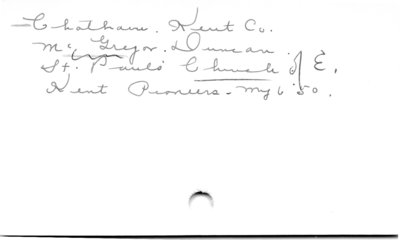 Chatham, Kent Co.
McGregor, Duncan.
St. Paul's Church of E.
Kent Pioneers - My 6 '50.